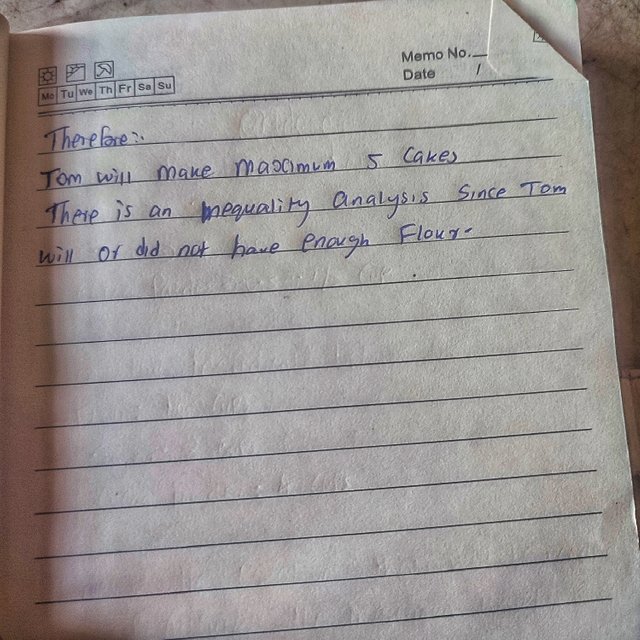 Memo No.
Date /
Mo Tu We Th Fr Sa Su
Therefore:.
Tom will make maximum 5 Cakes
There is an Inequality analysis Since Tom
will or did not have enough Flour.